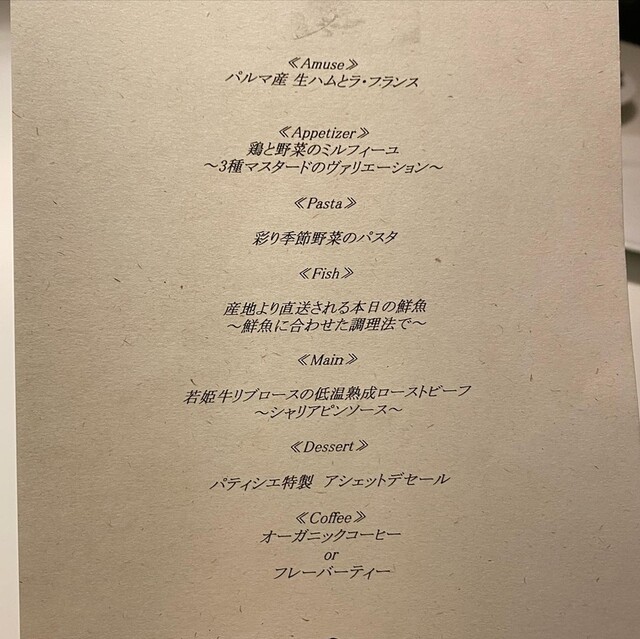 ≪Amuse≫
パルマ産 生ハムとラ・フランス
≪Appetizer≫
鶏と野菜のミルフィーユ
～3種マスタードのヴァリエーション～
≪Pasta≫
彩り季節野菜のパスタ
≪Fish≫
産地より直送される本日の鮮魚
～鮮魚に合わせた調理法で～
≪Main≫
若姫牛リブロースの低温熟成ローストビーフ
～シャリアピンソース～
≪Dessert≫
パティシエ特製 アシェットデセール
≪Coffee≫
オーガニックコーヒー
or
フレーバーティー